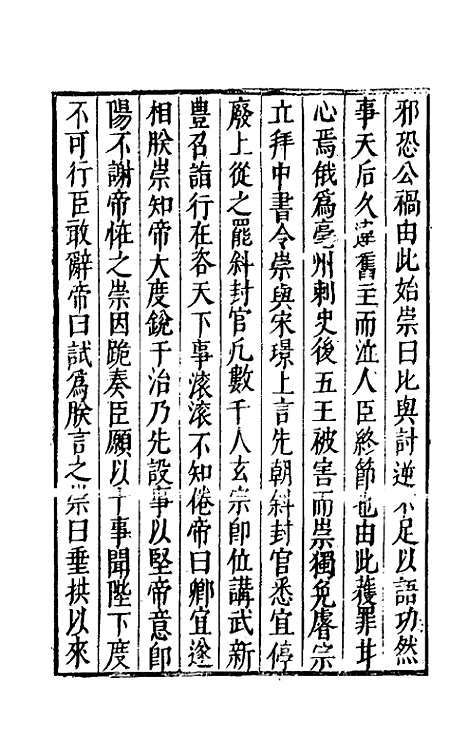 邪恐公禍由此始崇曰比與討逆不足以語功然
事天后久違舊主而泣人臣終節也由此獲罪甘
心焉俄爲亳州刺史後五王被害而崇獨免睿宗
立拜中書令崇與宋璟上言先朝斜封官悉宜停
廢上從之罷斜封官凡數千人玄宗卽位講武新
豐召詣行在咨天下事滚滚不知倦帝曰卿宜遂
相朕崇知帝大度銳于治乃先設事以堅帝意卽
陽不謝帝怪之崇因跪奏臣願以十事聞陛下度
不可行臣敢辭帝曰試爲朕言之崇曰垂拱以來